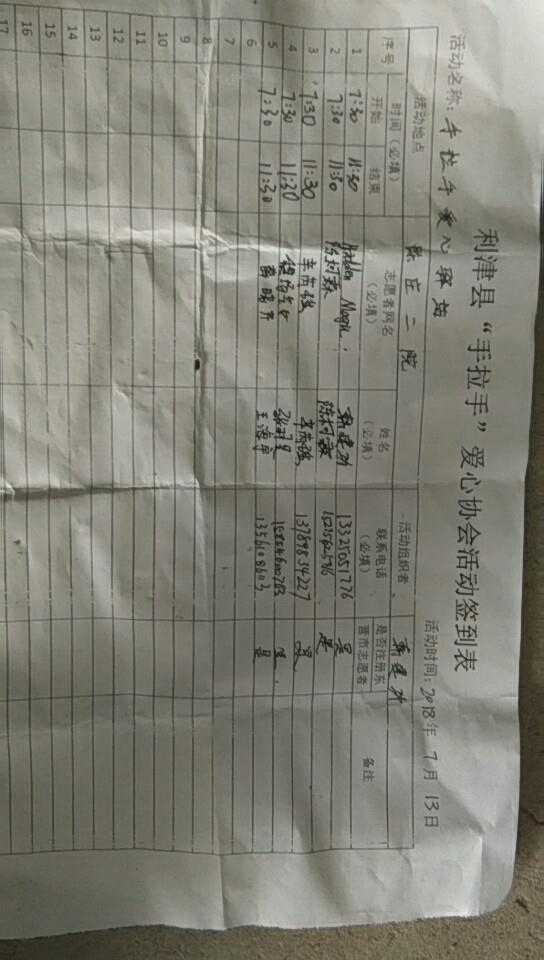 利津县“手拉手”爱心协会活动签到表
活动名称：手拉手爱心驿站 活动时间：2018年 7月 13日
活动地点 陈庄二院 活动组织者
序号 时间（必填） 志愿者网名（必填） 姓名（必填） 联系电话（必填） 是否注册东营市志愿者 备注
开始 结束
1 7:30 11:30 13325051776 是
2 7:30 11:30 陈树森 陈树森 是
3 7:30 11:30 辛荷强 辛荷强 13789834227 是
4 7:30 11:30 是
5 7:30 11:30 王海军 13561086603 是
6
7
8
9
10
11
12
13
14
15
16
17